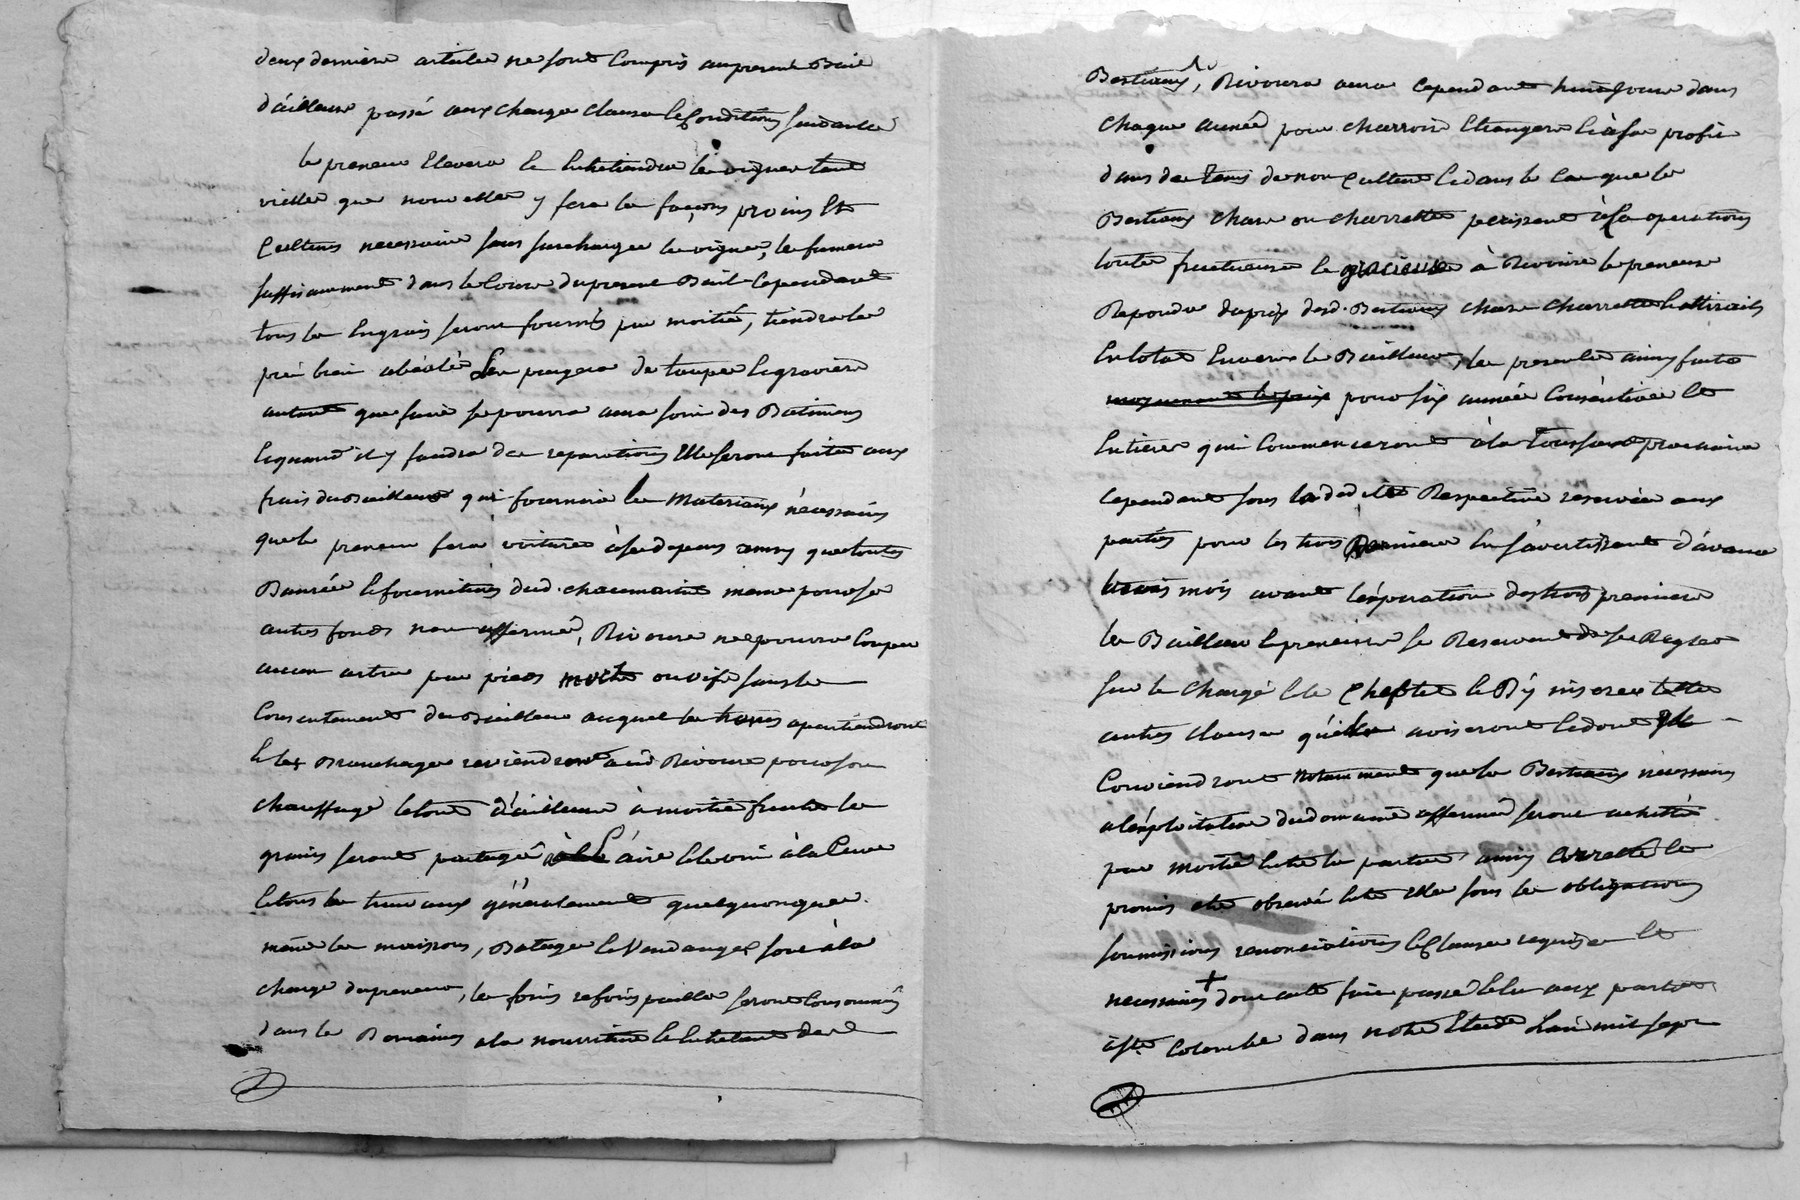 deux derniere article ne sont Compris au present Bail
d'ailleurs passé aux charge clause et Conditions suivante
le preneur Elevera et Entretiendra les vigne tant
vielle que nouvelle y fera les façons provins Et
Cultures necessaire sans surcharger les vigne, les fumera
suffisamment dans le Cours du present Bail Cependant
tous les Engrais seront fournis par moitié, tiendra les
pré bien purgera de taupe Et gravière
autant que faire se pourra aura soin des Batimens
Et quand il y faudra des reparations Elle seront faites aux
frais du Bailleur qui fournira les Materiaux nécessaires
que le preneur fera voiturer à ses depens ainsy que toutes
et fournitures dud. même pour ses
autres fonds non affermé, Rivoire ne pourra Couper
aucun arbre par pieds morts ou vifs sans le
Consentement du Bailleur auquel les troncs apartiendront
Et les Branchage reviendront aud Rivoire pour son
chauffage le tout d'ailleurs à moitié fruits les
grains seront partagé à l'aire Et le vin à la Cuve
Et tous les travaux généralement quelquonques
même les moissons, Batage et Vendanges sont à la
charge du preneur, les foins refoins paille seront Consommés
dans le Domaines a la nourriture Et Entretient des d
Bestiaux, Rivoire aura Cependant huit jours dans
chaque année pour charrois Etrangers Et à son profit
dans des tems de non Culture Et dans le Cas que les
Bestiaux chars ou charrettes perissent à Ses operations
toute fructueuse Et gracieuse à Rivoire le preneur
Repondra du prix desd. Bestiaux chars charrettes Et attirails
En total Envers le Bailleur, les presente ainsy faite
moyenant le prix pour six année Consécutive Et
Entiere qui Commenceront à la Toussaint prochaine
Cependant sous la dedite Respective reservée aux
parties pour les trois Derniere En s'avertissant d'avance
trois mois avant l'expiration des trois premiere
les Bailleur Et preneur se Reservent de se Regler
sur le chargé Et le Cheptel Et D'y inserer telles
autres clause qu'elles aviseront Et dont Elle
Conviendront notamment que les Bestiaux nécessaires
a l'exploitation dud domaine affermé seront acheté
par moitié Entre les partie ainsy Convenu Et
promis être observé Entre Elle sous les obligations
soumissions renonciations Et Clause requise Et
necessaires + dont acte fait passé Et lu aux parties
à Ste Colombe dans notre Etude L'an mil sept